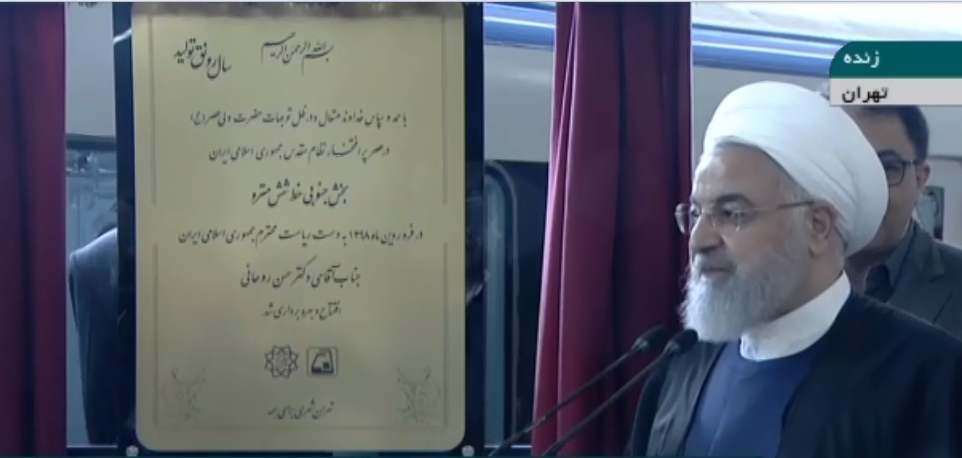 بسم الله الرحمن الرحیم
سال رونق تولید
با حمد و سپاس خداوند متعال و در ظل توجهات حضرت ولی عصر(ع)
در عصر پر افتخار نظام مقدس جمهوری اسلامی ایران
بخش جنوبی خط شش مترو
در فروردین ماه ۱۳۹۸ به دست ریاست محترم جمهوری اسلامی ایران
جناب آقای دکتر حسن روحانی
افتتاح و بهره برداری شد.
تهران شهری برای همه
زنده
تهران